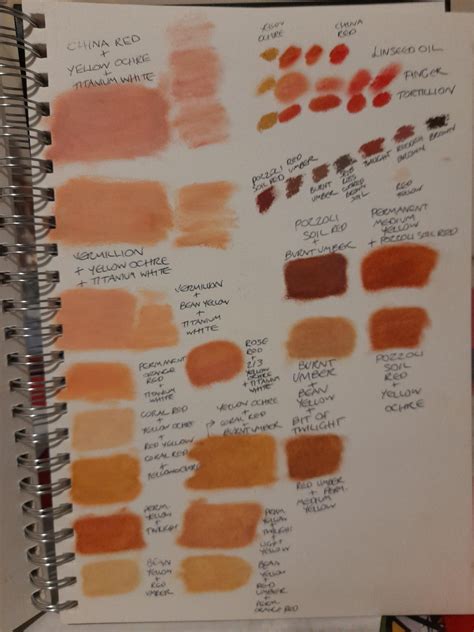 CHINA RED
+
YELLOW OCHRE
+
TITANIUM WHITE
YELLOW
OCHRE
CHINA
RED
LINSEED OIL
FINGER
TORTILLION
POZZOLI RED
SOIL RED UMBER
BURNT
UMBER
TWILIGHT
BROWN
BROWN
RED
YELLOW
POZZOLI
SOIL RED
+
BURNT UMBER
PERMANENT
MEDIUM
YELLOW
+ POZZOLI SOIL RED
VERMILLION
+ YELLOW OCHRE
+ TITANIUM WHITE
VERMILLION
+
BEAN YELLOW
+
TITANIUM
WHITE
PERMANENT
ORANGE
RED
+
TITANIUM
WHITE
ROSE
RED
+
2/3
YELLOW
OCHRE
+ TITANIUM
WHITE
BURNT
UMBER
+
BEAN
YELLOW
+
BIT OF
TWILIGHT
POZZOLI
SOIL
RED
+
YELLOW
OCHRE
CORAL RED
+
YELLOW OCHRE
+
RED YELLOW
CORAL RED
+
YELLOW OCHRE
YELLOW OCHRE
+
CORAL RED
+
BURNT UMBER
RED UMBER
+ PERM.
MEDIUM
YELLOW
PERM.
YELLOW
+
TWILIGHT
PERM
YELLOW
+
TWILIGHT
+
LIGHT
YELLOW
BEAN
YELLOW
+
RED
UMBER
BEAN
YELLOW
+
RED
UMBER
+
PERM.
ORANGE RED